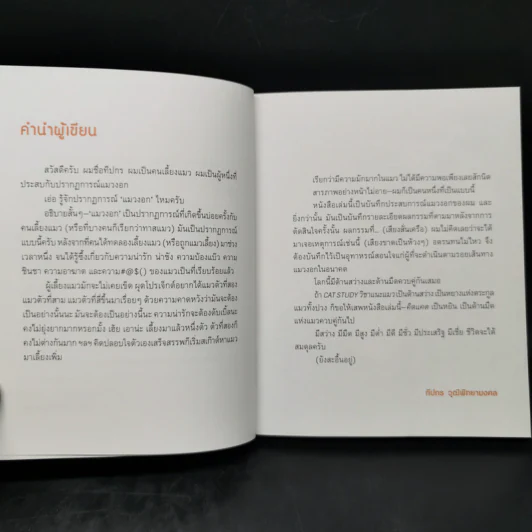 คำนำผู้เขียน
สวัสดีครับ ผมชื่อทีปกร ผมเป็นคนเลี้ยงแมว ผมเป็นผู้หนึ่งที่
ประสบกับปรากฏการณ์แมวงอก
เอ่อ รู้จักปรากฏการณ์ 'แมวงอก' ไหมครับ
อธิบายสั้นๆ–'แมวงอก' เป็นปรากฏการณ์ที่เกิดขึ้นบ่อยครั้งกับ
คนเลี้ยงแมว (หรือที่บางคนก็เรียกว่าทาสแมว) มันเป็นปรากฏการณ์
แบบนี้ครับ หลังจากที่คนได้ทดลองเลี้ยงแมว (หรือถูกแมวเลี้ยง) มาช่วง
เวลาหนึ่ง จนได้รู้ซึ้งเกี่ยวกับความน่ารัก น่าชัง ความป้องแป้ว ความ
ซึนชา ความอาฆาต และความ#@$() ของแมวเป็นที่เรียบร้อยแล้ว
ผู้เลี้ยงแมวมักจะไม่เคยเข็ด ผุดโปรเจ็กต์อยากได้แมวตัวที่สอง
แมวตัวที่สาม แมวตัวที่สี่ขึ้นมาเรื่อยๆ ด้วยความคาดหวังว่ามันจะต้อง
เป็นอย่างนั้นนะ มันจะต้องเป็นอย่างนี้นะ ความน่ารักจะต้องดับเบิ้ลนะ
คงไม่ยุ่งยากมากหรอกมั้ง เฮ้ย เอาน่ะ เลี้ยงมาแล้วหนึ่งตัว ตัวที่สองก็
คงไม่ต่างกันมาก ฯลฯ คิดปลอบใจตัวเองเสร็จสรรพก็เริ่มสเก๊าท์หาแมว
มาเลี้ยงเพิ่ม
เรียกว่ามีความมักมากในแมว ไม่ได้มีความพอเพียงเลยสักนิด
สารภาพอย่างหน้าไม่อาย–ผมก็เป็นคนหนึ่งที่เป็นแบบนี้
หนังสือเล่มนี้เป็นบันทึกประสบการณ์แมวงอกของผม และ
ยิ่งกว่านั้น มันเป็นบันทึกรายละเอียดผลกรรมที่ตามมาหลังจากการ
ตัดสินใจครั้งนั้น ผลกรรมที่... (เสียงสั่นเครือ) ผมไม่คิดเลยว่าจะได้
มาเจอเหตุการณ์เช่นนี้ (เสียงขาดเป็นห้วงๆ) อดรนทนไม่ไหว จึง
ต้องบันทึกไว้เป็นอุทาหรณ์สอนใจแก่ผู้ที่จะดำเนินตามรอยเส้นทาง
แมวงอกในอนาคต
โลกนี้มีด้านสว่างและด้านมืดควบคู่กันเสมอ
ถ้า CAT STUDY วิชาแมวเป็นด้านสว่าง เป็นหยางแห่งตระกูล
แมวทั้งปวง ก็ขอให้เสพหนังสือเล่มนี้–คิดแคต เป็นหยิน เป็นด้านมืด
แห่งแมวควบคู่กันไป
มีสว่าง มีมืด มีสูง มีต่ำ มีดี มีชั่ว มีประเสริฐ มีเชี่ย ชีวิตจะได้
สมดุลครับ
(ยังสะอื้นอยู่)
ทีปกร วุฒิพิทยามงคล